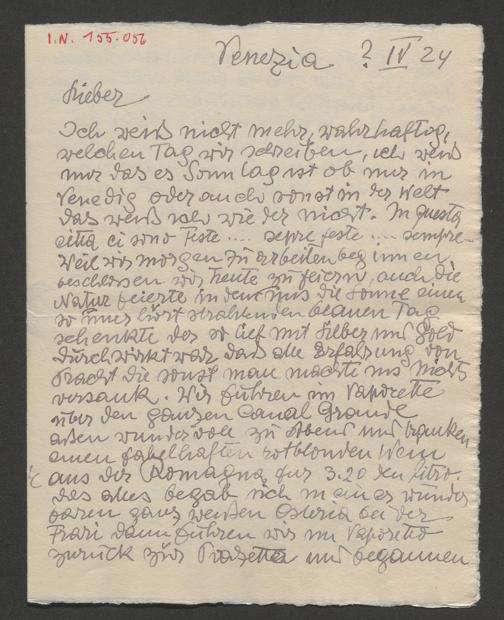 I.N. 155.056
Venezia ? IV 24
Lieber
Ich weiß nicht mehr, wahrhaftig,
welchen Tag wir schreiben, ich weiß
nur das es Sonntag ist ob nur in
Venedig oder auch sonst in der Welt
das weiß ich wie der nicht. In questa
citta ci sono feste .... sempre feste .... sempre
Weil wir morgen zu arbeiten beginnen
beschlossen wir heute zu feiern, auch die
Natur feierte indem uns die Sonne einen
so unerhört strahlenden blauen Tag
schenkte der so tief mit Silber und Gold
durchwirkt war das alle Erfahrung von
Pracht die sonst man machte ins Nichts
versank. Wir fuhren im Vaporetto
über den ganzen Canal Grande
aßen wundervoll zu Abend und tranken
einen fabelhaften rotblonden Wein
aus der Romagna für 3.20 den litro.
des alles begab sich in einer wunder
baren ganz weißen Osteria bei der
Frari dann fuhren wir im Vaporetto
zurück zur Piazzetta und begannen